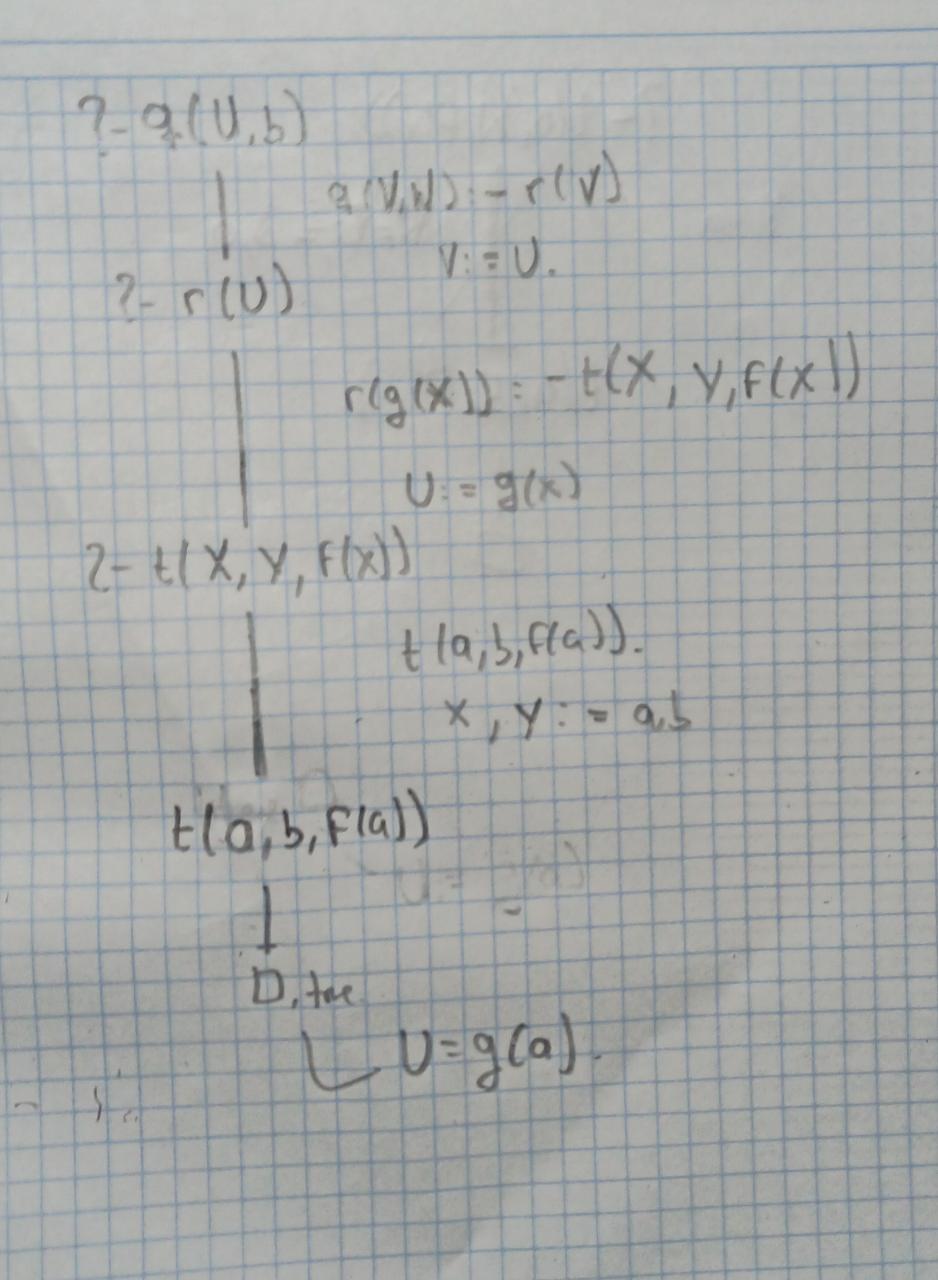 ?- q(U,b)
q(V,W) :- r(V)
V:=U.
?- r(U)
r(g(X)) :- t(X, Y, f(X))
U:= g(x)
?- t(X, Y, f(x))
t(a,b,f(a)).
x, y := a,b
t(a, b, f(a))
□, true
U=g(a).